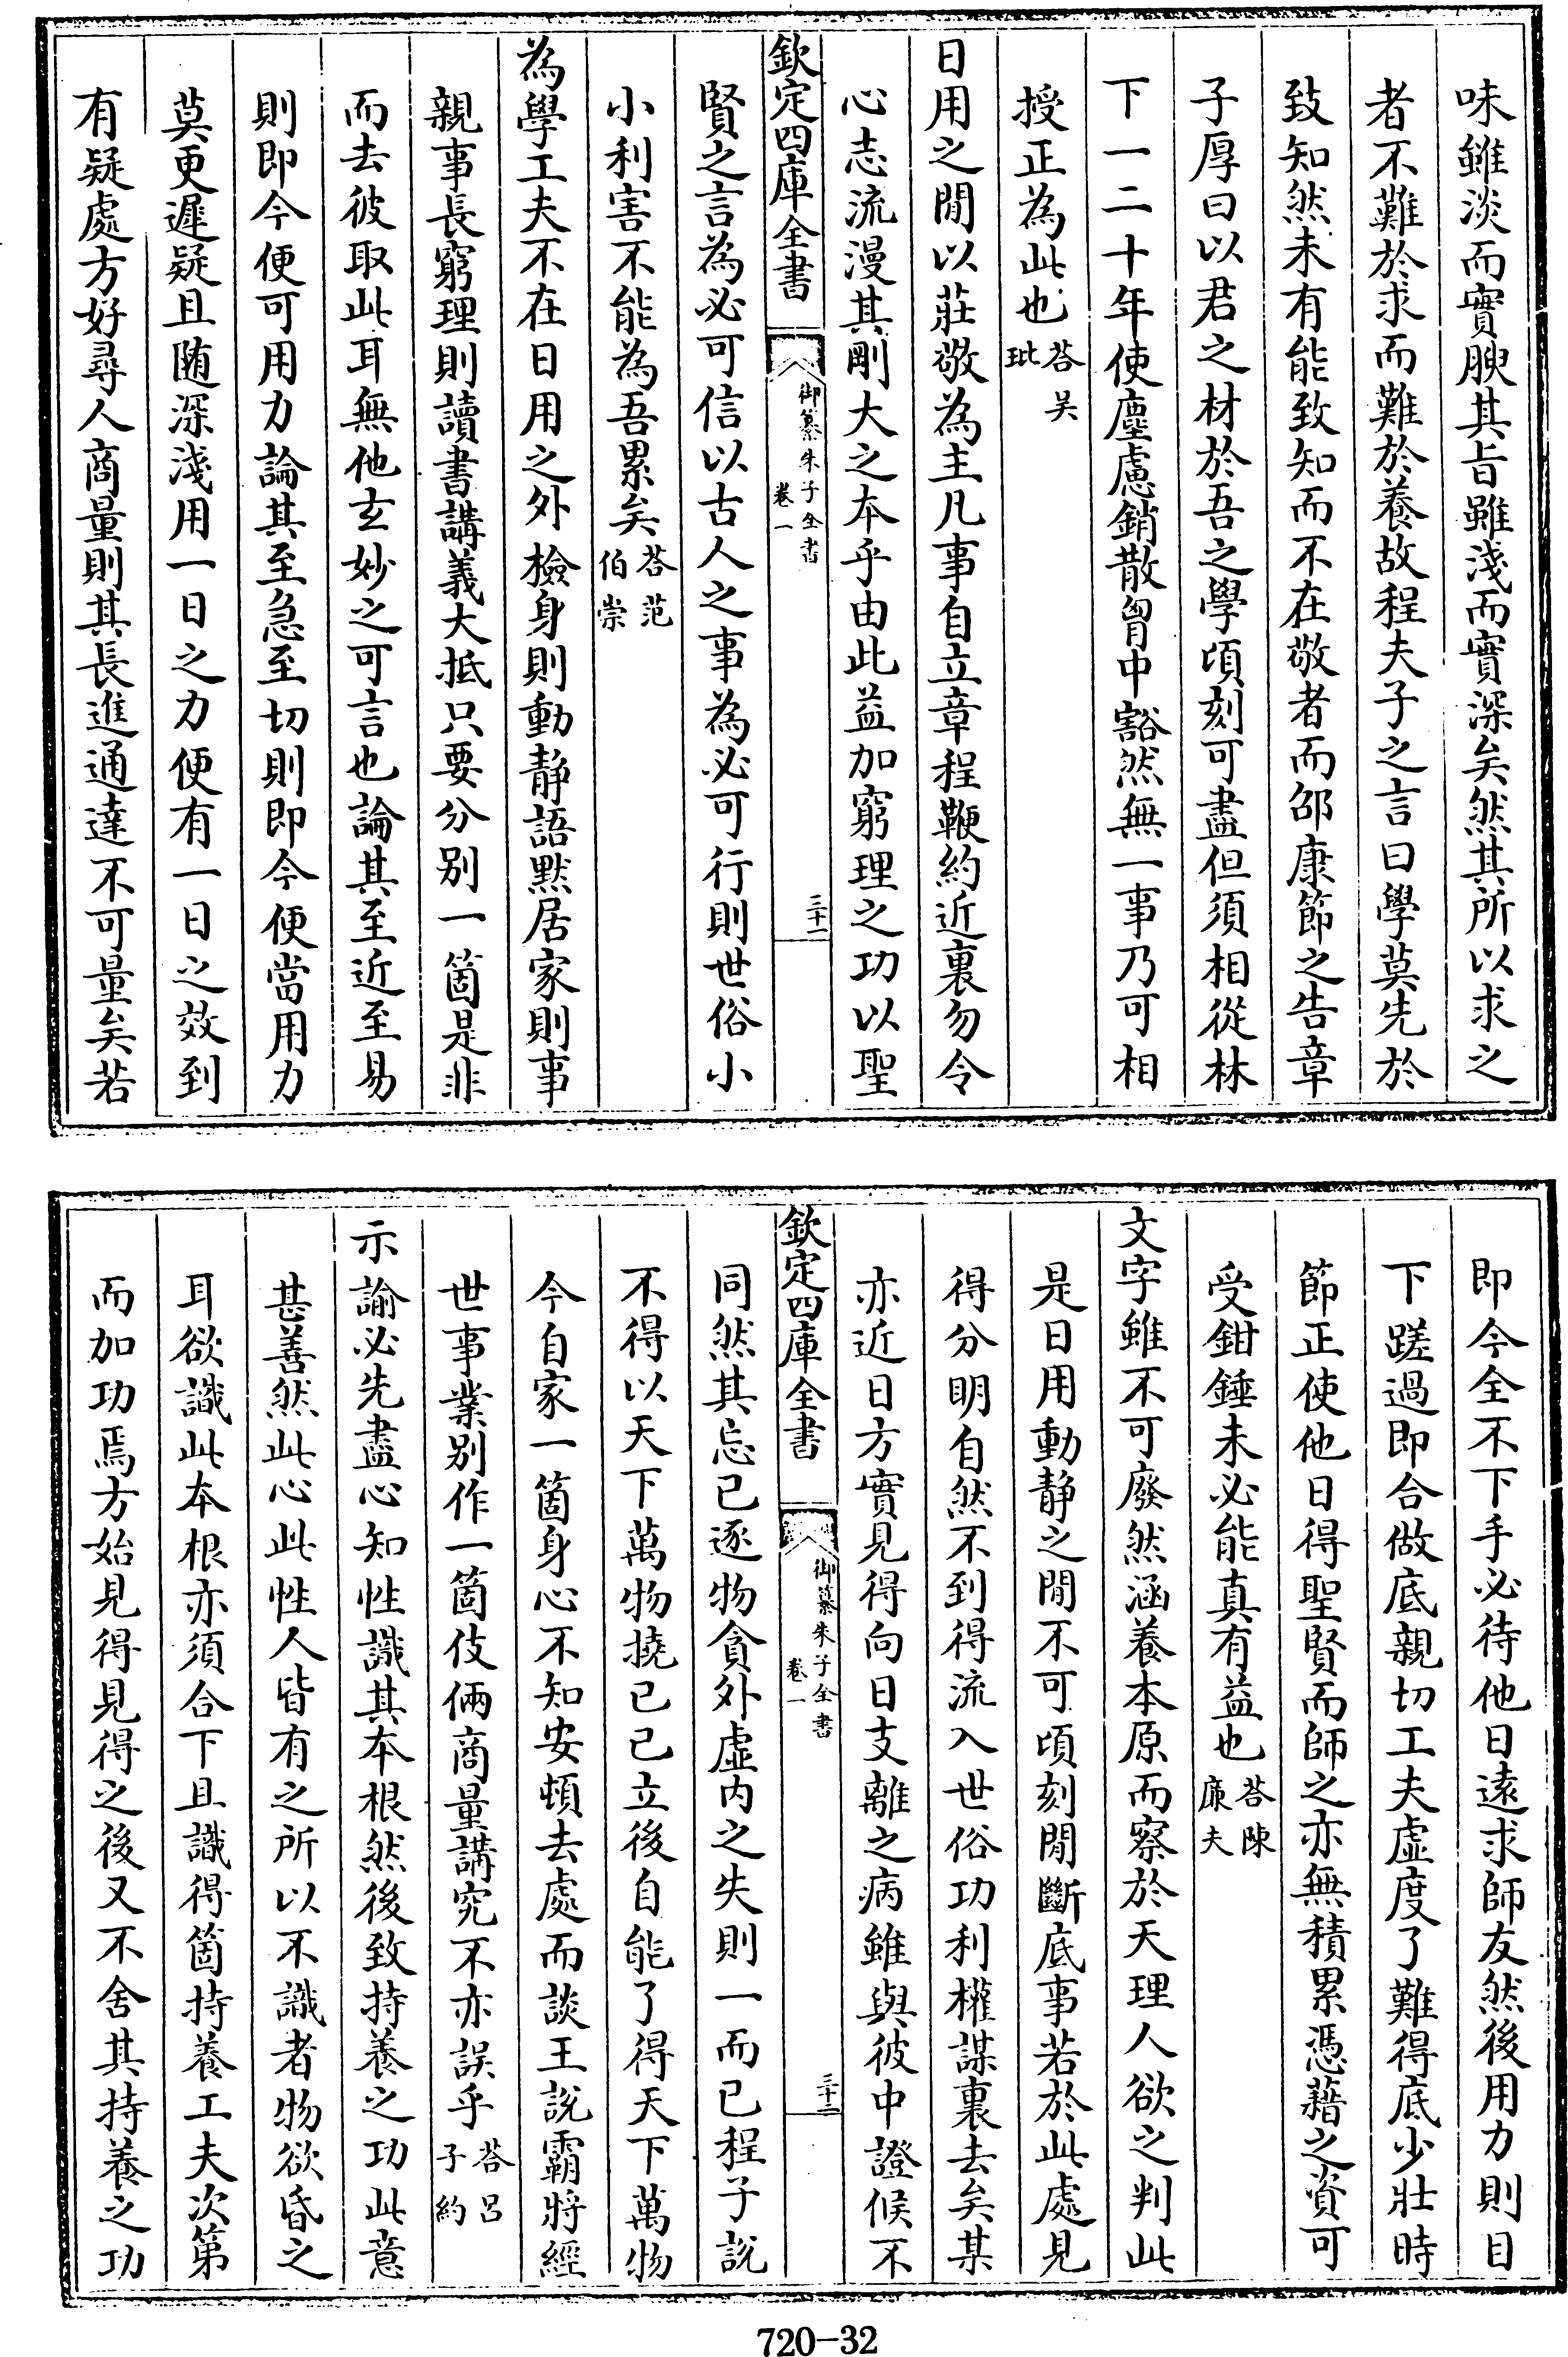 味雖淡而實腴其旨雖淺而實深矣然其所以求之
者不難於求而難於養故程夫子之言曰學莫先於
致知然未有能致知而不在敬者而邵康節之告章
子厚曰以君之材於吾之學頃刻可盡但須相從林
下一二十年使塵慮銷散胷中豁然無一事乃可相
授正為此也答吳玭
日用之間以莊敬為主凡事自立章程鞭約近裏勿令
心志流漫其剛大之本乎由此益加窮理之功以聖
欽定四庫全書
御纂朱子全書
卷一
三十一
賢之言為必可信以古人之事為必可行則世俗小
小利害不能為吾累矣答范伯崇
為學工夫不在日用之外檢身則動靜語黙居家則事
親事長窮理則讀書講義大抵只要分別一箇是非
而去彼取此耳無他玄妙之可言也論其至近至易
則即今便可用力論其至急至切則即今便當用力
莫更遲疑且随深淺用一日之力便有一日之效到
有疑處方好尋人商量則其長進通達不可量矣若
即今全不下手必待他日遠求師友然後用力則目
下蹉過即合做底親切工夫虛度了難得底少壯時
節正使他日得聖賢而師之亦無積累憑藉之資可
受鉗錘未必能真有益也答陳廉夫
文字雖不可廢然涵養本原而察於天理人欲之判此
是日用動靜之間不可頃刻間斷底事若於此處見
得分明自然不到得流入世俗功利權謀裏去矣某
亦近日方實見得向日支離之病雖與彼中證候不
欽定四庫全書
御纂朱子全書
卷一
三十二
同然其忘已逐物貪外虛内之失則一而已程子說
不得以天下萬物撓已已立後自能了得天下萬物
今自家一箇身心不知安頓去處而談王說霸將經
世事業别作一箇伎倆商量講究不亦誤乎答呂子約
示諭必先盡心知性識其本根然後致持養之功此意
甚善然此心此性人皆有之所以不識者物欲昏之
耳欲識此本根亦須合下且識得箇持養工夫次第
而加功焉方始見得見得之後又不舍其持養之功
720-32